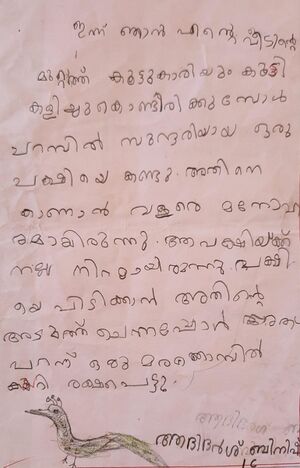 ഇന്ന് ഞാൻ എൻ്റെ വീടിൻ്റെ
മുറ്റത്ത് കൂട്ടുകാരിയും കൂടി
കളിച്ചുകൊണ്ടിരിക്കുമ്പോൾ
പറമ്പിൽ സുന്ദരിയായ ഒരു
പക്ഷിയെ കണ്ടു. അതിനെ
കാണാൻ വളരെ മനോഹ
രമായിരുന്നു. ആ പക്ഷിയ്ക്ക്
നല്ല നിറമായിരുന്നു. പക്ഷി
യെ പിടിക്കാൻ അതിൻ്റെ
അടുത്ത് ചെന്നപ്പോൾ അത്
പറന്ന് ഒരു മരക്കൊമ്പിൽ
കയറി രക്ഷപെട്ടു.
ബിനിഷ്